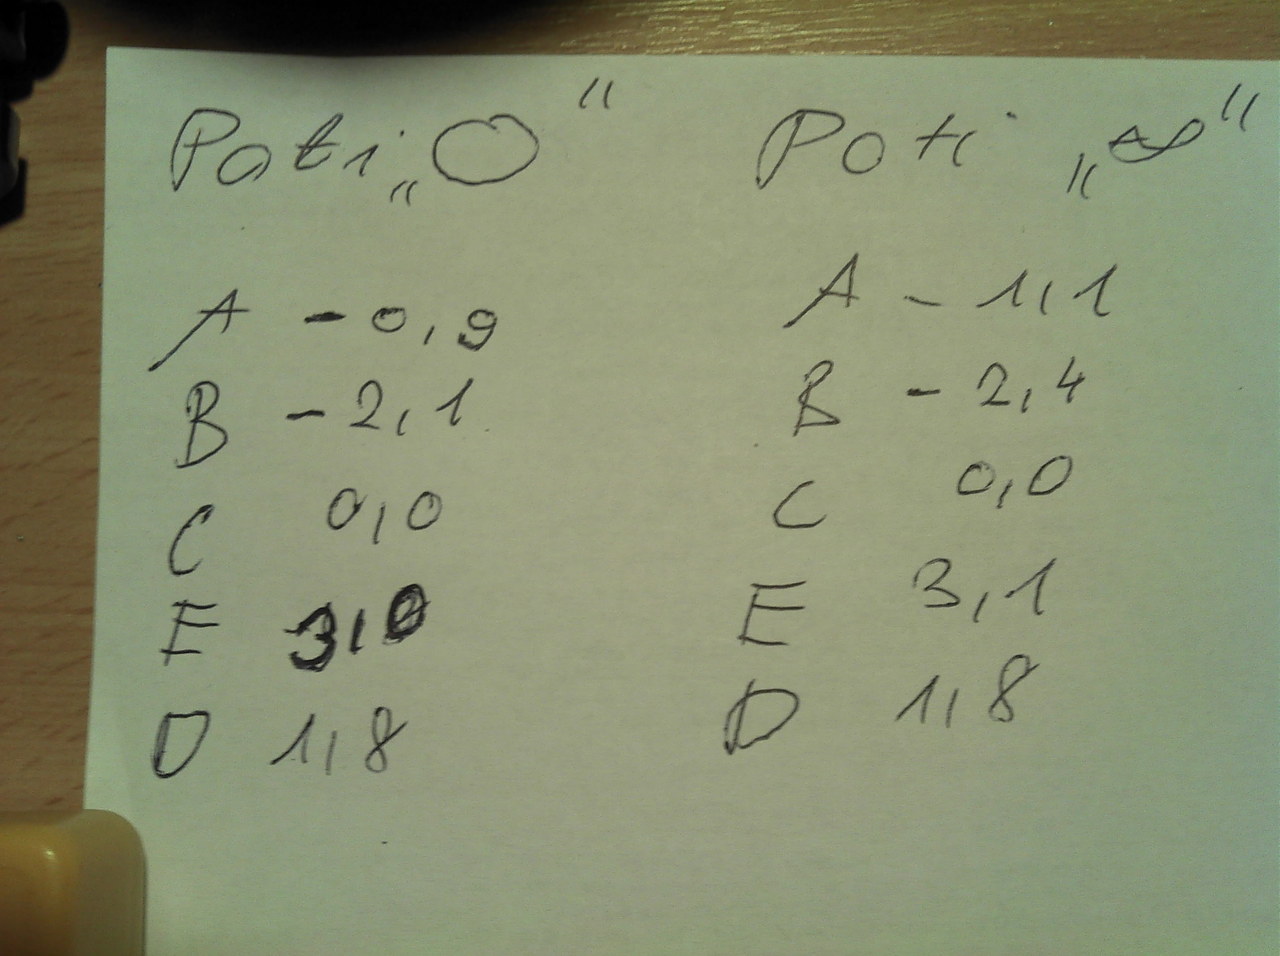 Poti „0“
A -0,9
B -2,1
C 0,0
E 3,0
D 1,8
Poti „∞“
A -1,1
B -2,4
C 0,0
E 3,1
D 1,8